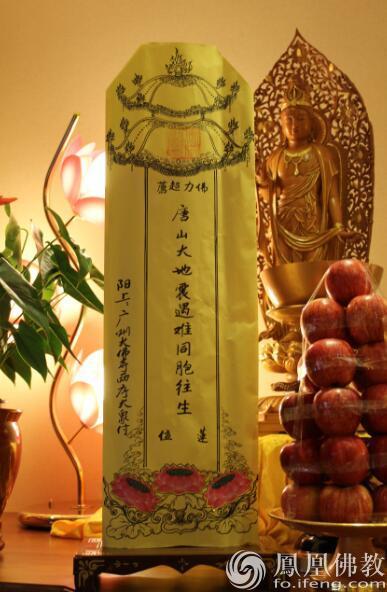 佛力超薦
唐山大地震遇难同胞往生
蓮位
阳上:广州大佛寺两序大众
鳳凰佛教
fo.ifeng.com